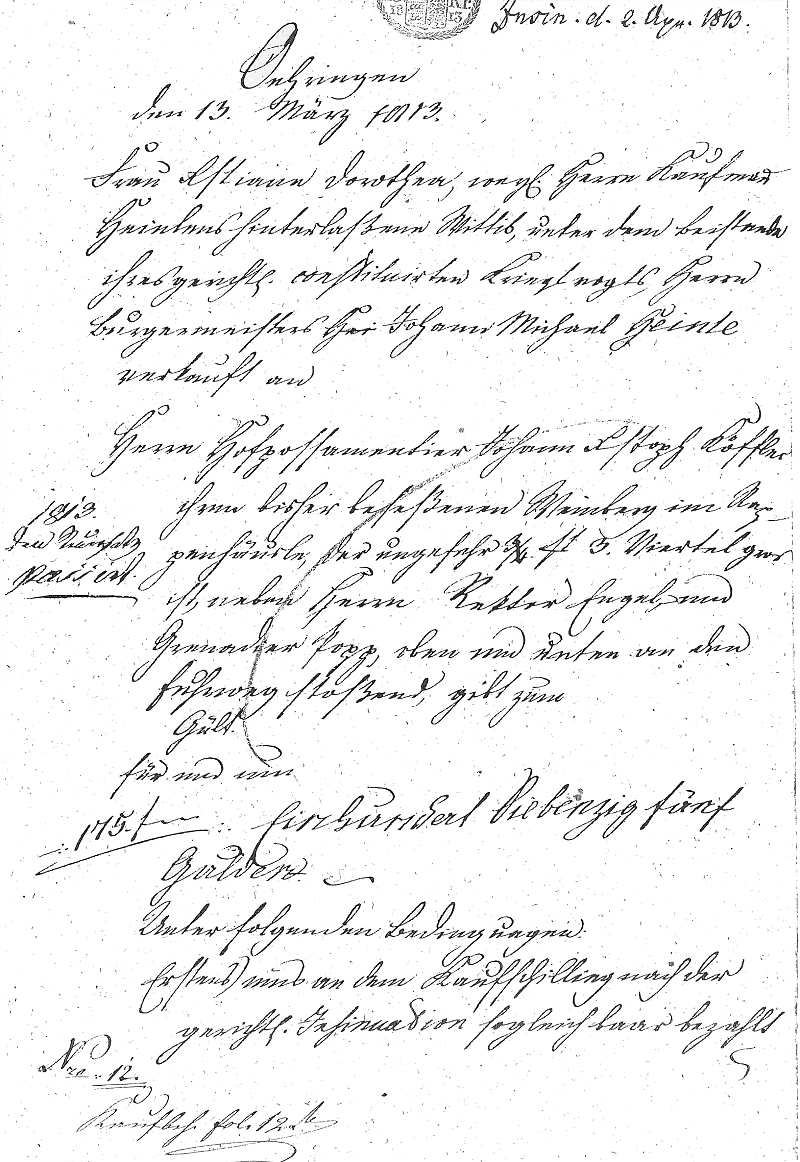 Insin. d. 2. Apr. 1813.
Oehringen
den 13. März 1813.
Frau Xstiane Dorothea, wegl. Herrn Kaufmann
Heinlens hinterlaßene Wittib, unter dem Beistande
ihres gerichtl. constituirten Kriegsvogts, Herrn
Burgermeisters Johann Michael Heinle
verkauft an
Herrn Hofpossamentier Johann Xstoph Köffler
ihren bisher beseßenen Weinberg im Rap-
penhäusle, der ungefehr 3. Viertel gros
ist, neben Herrn Rektor Engel, und
Grenadier Popp, oben und unten an den
Fuhrweg stoßend, gibt zum
Gült.
für und um
175. f Einhundert Siebenzig fünf
Gulden.
Unter folgenden Bedingungen:
Erstens) muss an dem Kaufschilling nach der
gerichtl. Insinuation sogleich baar bezahlt
1813.
den
passirt.
Nro. 12.
Kaufbch. fol. 12.